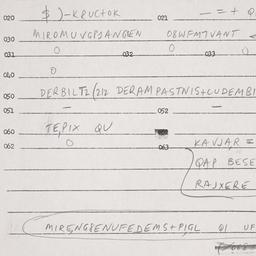 020 $ )-KRUCTOK 021 — = + Q
030 MIROMUVGPJANGEN 08WFMTVANT
031 0 032 0 033 0
040 0
050 DERBILTZ(212 DERAMPASTNIS+CUDEMBI
051 — 052 —
060 TE,PIX QU
062 0 063 KAVJAR =
QAP BESE
RAJXERE
MIRENGPENUFEDEMS+PIGL QI UF